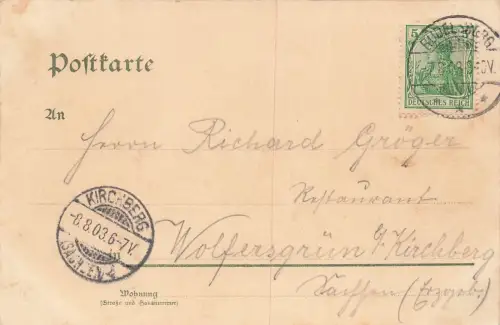 Postkarte
5
DEUTSCHES REICH
An
Herrn Richard Gröger
Restaurant
KIRCHBERG
-8.8.03.6-7V.
(SACHSEN)
Wolfersgrün b/Kirchberg
Sachsen (Erzgeb.)
Wohnung
(Straße und Hausnummer)